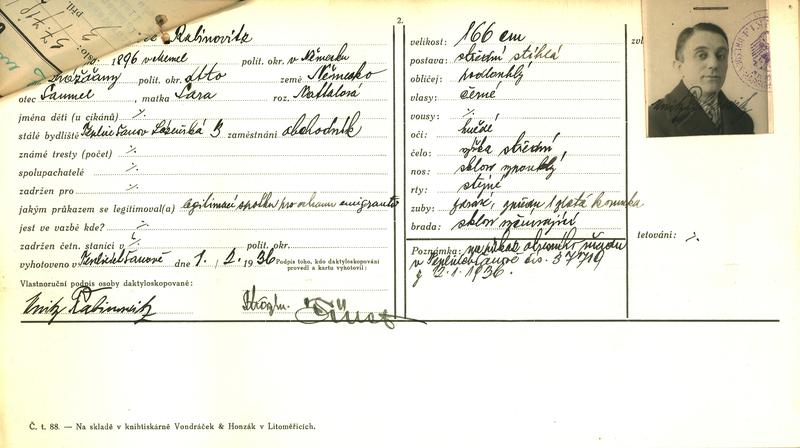 2.
Rabinovitz
1896 v Memel polit. okr. v Německu
Drážďany polit. okr. dtto země Německo
otec Samuel, matka Sara roz. Naftalová
jména dětí (u cikánů) ⁒
stálé bydliště Teplice Šanov Lázeňská 3 zaměstnání obchodník
známé tresty (počet) ⁒
spolupachatelé ⁒
zadržen pro ⁒
jakým průkazem se legitimoval(a) legitimací spolku pro ochranu emigrantů
jest ve vazbě kde? ⁒
zadržen četn. stanicí v ⁒ polit. okr.
vyhotoveno v Teplicích Šanově dne 1. / 2. 1936 Podpis toho, kdo daktyloskopování provedl a kartu vyhotovil:
Vlastnoruční podpis osoby daktyloskopované:
Fritz Rabinowitz
velikost: 166 cm
postava: střední štíhlá
obličej: podlouhlý
vlasy: černé
vousy: ⁒
oči: hnědé
čelo: výška střední
nos: sklon vypouklý
rty: stejné
zuby: zdravé, vpředu 1 zlatá korunka
brada: sklon
Poznámka: na příkaz okresního úřadu
v Teplicích Šanově čís. 37719
z 2.1.1936.
zvl
tetování: ⁒
Č. t. 88. — Na skladě v knihtiskárně Vondráček & Honzák v Litoměřicích.